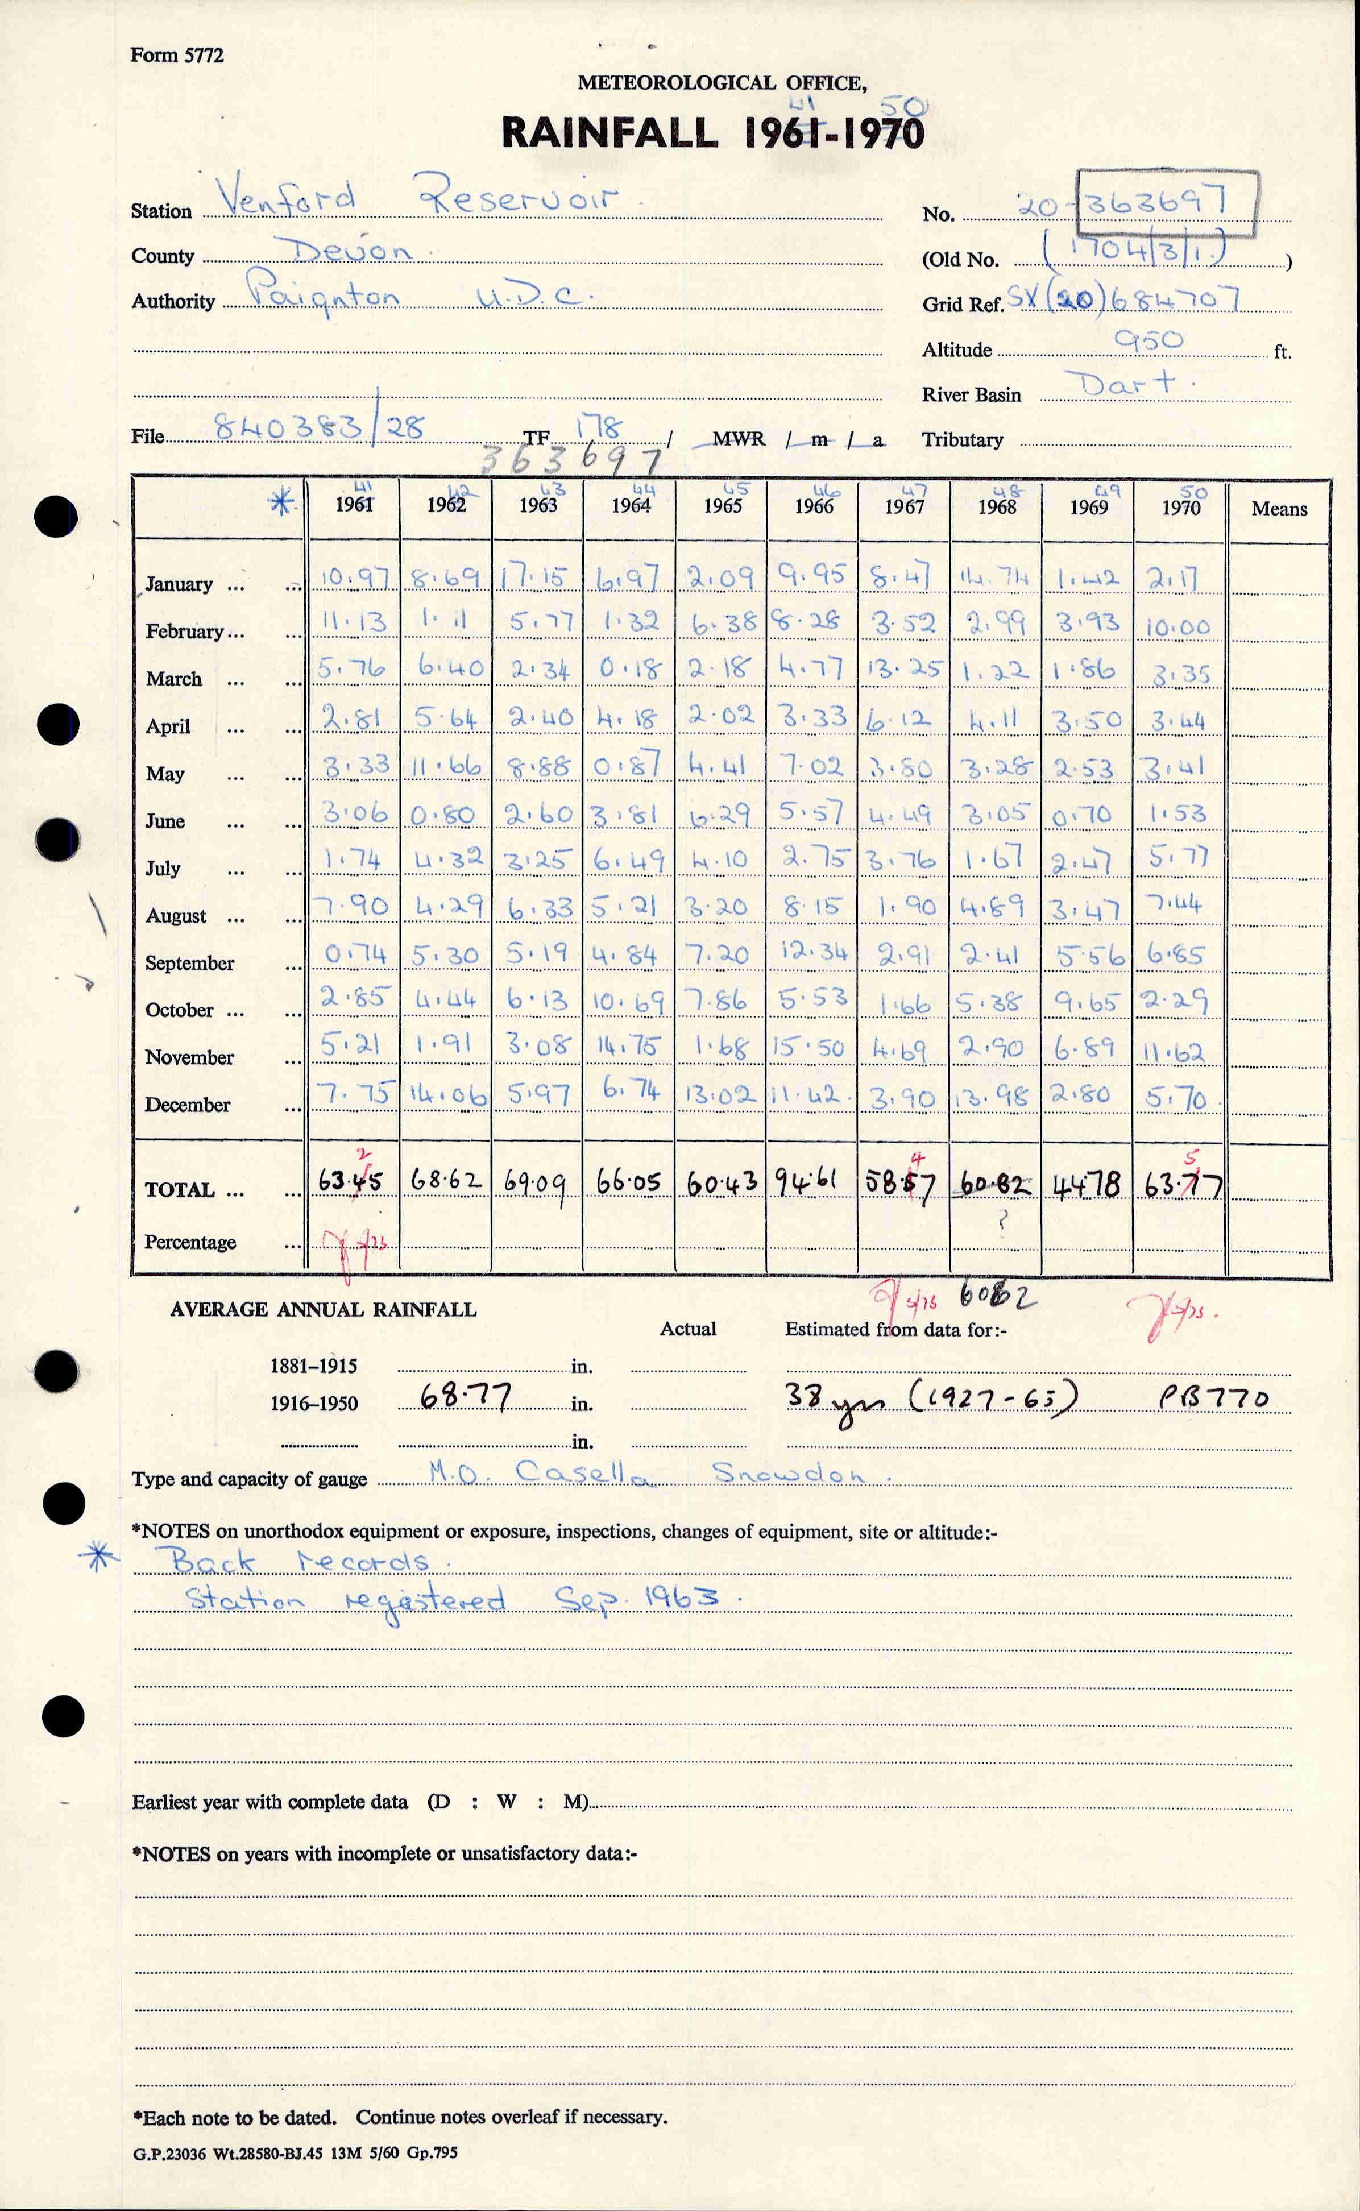 Form 5772
METEOROLOGICAL OFFICE,
41 50
RAINFALL 1961-1970
Station Venford Reservoir. No. 20-363697
County Devon. (Old No. (1704/3/1.) )
Authority Paignton U.D.C. Grid Ref. SX(20)684707
Altitude 950 ft.
River Basin Dart.
File 840383/28 TF 178 / MWR / m / a Tributary
363697
41 42 43 44 45 46 47 48 49 50
* 1961 1962 1963 1964 1965 1966 1967 1968 1969 1970 Means
January ... ... 10.97 8.69 17.15 6.97 2.09 9.95 8.47 14.74 1.42 2.17
February... ... 11.13 1.11 5.77 1.32 6.38 8.28 3.52 2.99 3.93 10.00
March ... ... 5.76 6.40 2.34 0.18 2.18 4.77 13.25 1.22 1.86 3.35
April ... ... 2.81 5.64 2.40 4.18 2.02 3.33 6.12 4.11 3.50 3.44
May ... ... 3.33 11.66 8.88 0.87 4.41 7.02 3.80 3.28 2.53 3.41
June ... ... 3.06 0.80 2.60 3.81 6.29 5.57 4.49 3.05 0.70 1.53
July ... ... 1.74 4.32 3.25 6.49 4.10 2.75 3.76 1.67 2.47 5.77
August ... ... 7.90 4.29 6.33 5.21 3.20 8.15 1.90 4.89 3.47 7.44
September ... 0.74 5.30 5.19 4.84 7.20 12.34 2.91 2.41 5.56 6.85
October ... ... 2.85 4.44 6.13 10.69 7.86 5.53 1.66 5.38 9.65 2.29
November ... 5.21 1.91 3.08 14.75 1.68 15.50 4.69 2.90 6.89 11.62
December ... 7.75 14.06 5.97 6.74 13.02 11.42 3.90 13.98 2.80 5.70
2 4 5
TOTAL ... ... 63.45 68.62 69.09 66.05 60.43 94.61 58.57 60.82 44.78 63.77
?
Percentage ...
5/75 6062
AVERAGE ANNUAL RAINFALL
Actual Estimated from data for:-
1881–1915 in.
1916–1950 68.77 in. 38 yrs (1927-65) PB770
in.
Type and capacity of gauge M.O. Casella Snowdon.
*NOTES on unorthodox equipment or exposure, inspections, changes of equipment, site or altitude:-
* Back records.
Station registered Sep. 1963.
Earliest year with complete data (D : W : M)
*NOTES on years with incomplete or unsatisfactory data:-
*Each note to be dated. Continue notes overleaf if necessary.
G.P.23036 Wt.28580-BJ.45 13M 5/60 Gp.795